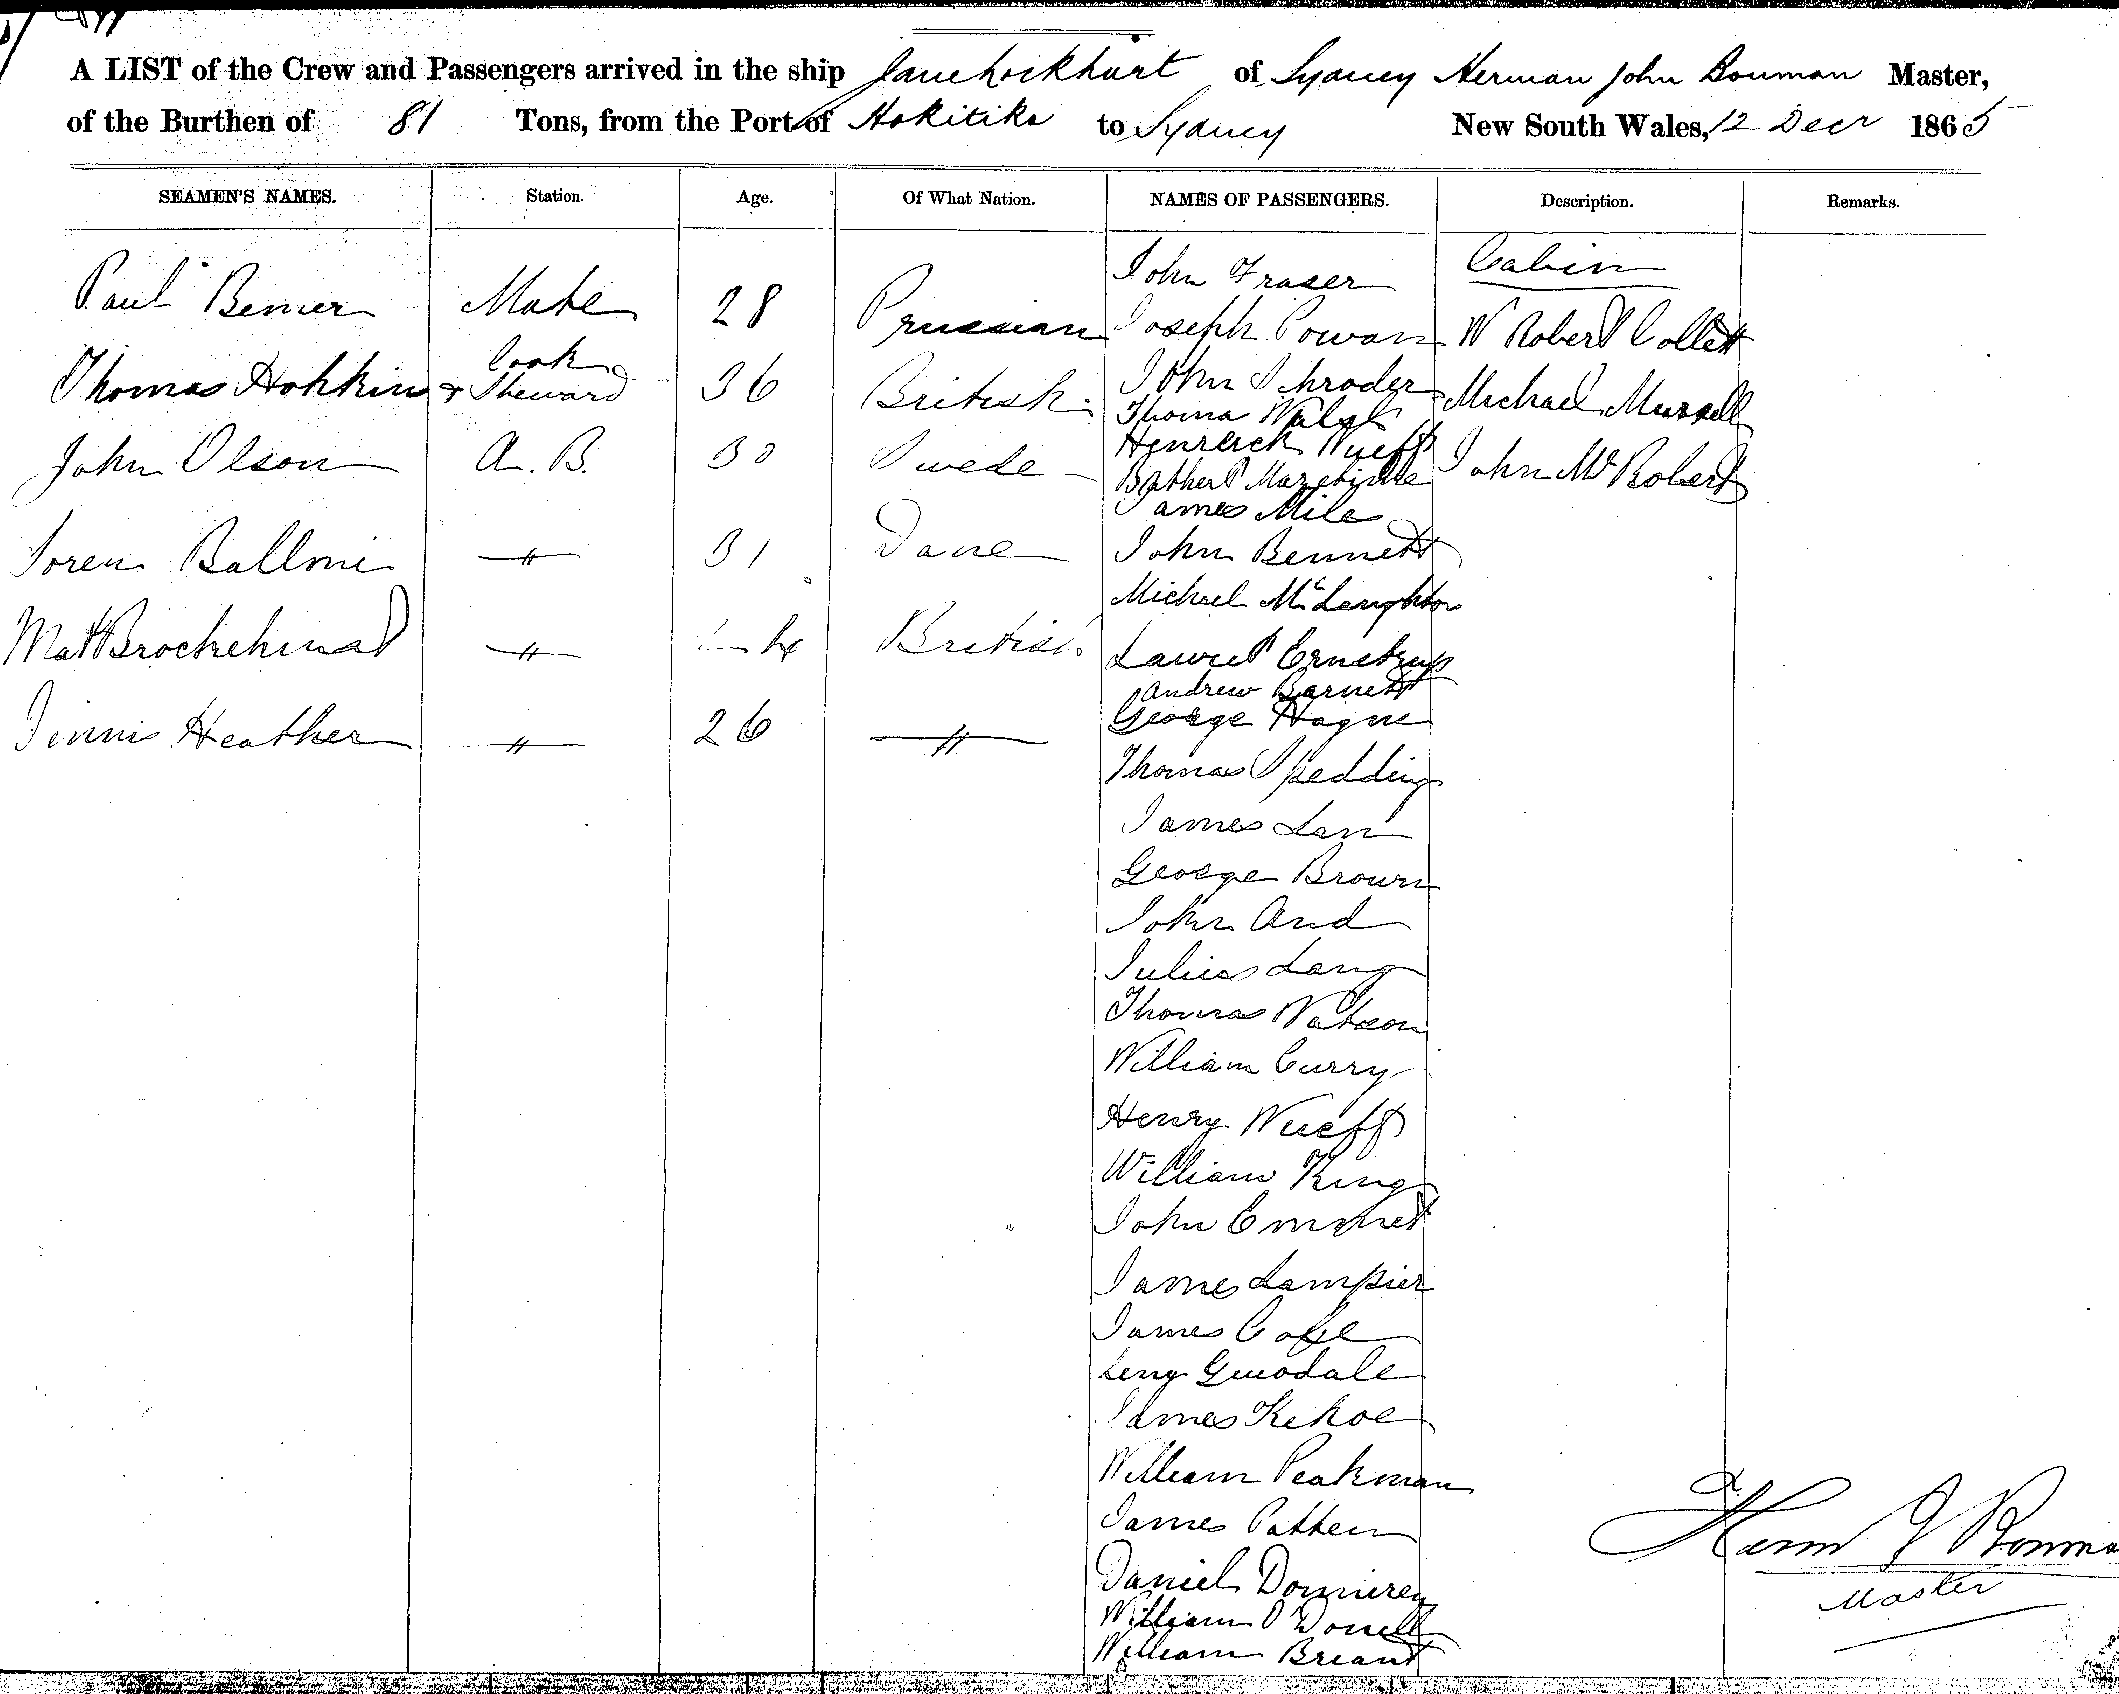 A LIST of the Crew and Passengers arrived in the ship Jane Lockhart of Sydney Herman John Bouman Master,
of the Burthen of 81 Tons, from the Port of Hokitika to Sydney New South Wales, 12 Decr 1865
SEAMEN'S NAMES. Station. Age. Of What Nation. NAMES OF PASSENGERS. Description. Remarks.
Paul Bemer Mate 28 Prussian
Thomas Hohkins Cook
& Steward 36 British
John Olson A. B. 30 Swede
Soren Ballme " 31 Dane
Mat " British
Heather " 26 "
John Fraser
Joseph Cowan
John Schroder
Thoma Walsh
Henrerck Wueff
James Mile
John Bennett
Michael McLaughton
Andrew Barnett
George Hagne
Thomas Spedding
James Lan
George Brown
John And
Julius Lang
Thomas Watson
William Curry
Henry Wueff
William King
John Emmet
James Lampier
James Cafe
Leny
James Kehoe
William Peakman
James Patten
Daniel
William O'Donell
William Breant
Cabin
W Robert Collett
Michael Mursell
John McRobert
Herm J Bouman
Master